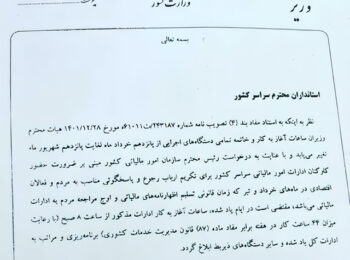 وزارت کشور
وزیر
بسمه تعالی
استانداران محترم سراسر کشور
نظر به اینکه به استناد مفاد بند (۴) تصویب نامه شماره ۲۴۳۱۸۷/ت۶۱۰۱۱ه مورخ ۱۴۰۱/۱۲/۲۸ هیات محترم
وزیران ساعات آغاز به کار و خاتمه تمامی دستگاه‌های اجرایی از پانزدهم خرداد ماه لغایت پانزدهم شهریور ماه،
تغییر می‌یابد و با عنایت به درخواست رئیس محترم سازمان امور مالیاتی کشور مبنی بر ضرورت حضور
کارکنان ادارات امور مالیاتی سراسر کشور برای تکریم ارباب رجوع و پاسخگوئی مناسب به مردم و فعالان
اقتصادی در ماه‌های خرداد و تیر که زمان قانونی تسلیم اظهارنامه‌های مالیاتی و اوج مراجعه مردم به ادارات
مالیاتی می‌باشد، مقتضی است در ایام یاد شده، ساعات آغاز به کار ادارات مذکور از ساعت ۸ صبح (با رعایت
میزان ۴۴ ساعت کار در هفته برابر مفاد ماده (۸۷) قانون مدیریت خدمات کشوری) برنامه‌ریزی و مراتب به
ادارات کل یاد شده و سایر دستگاه‌های ذیربط ابلاغ گردد.